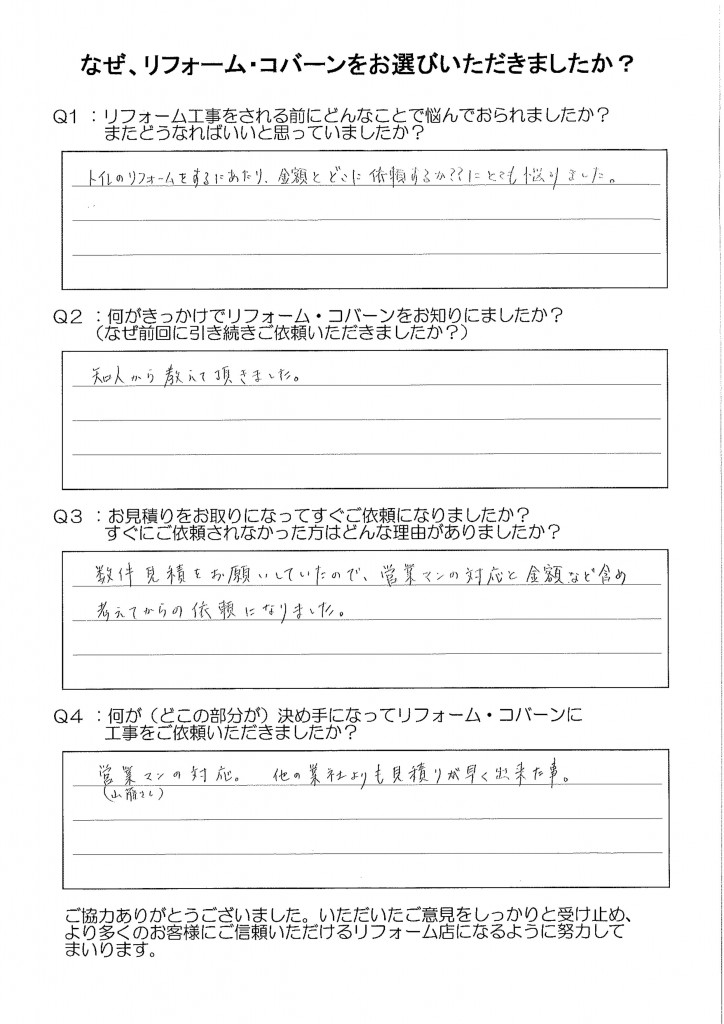 なぜ、リフォーム・コバーンをお選びいただきましたか？
Q1 ：リフォーム工事をされる前にどんなことで悩んでおられましたか？
またどうなればいいと思っていましたか？
トイレのリフォームをするにあたり、金額とどこに依頼するか??にとても悩りました。
Q2 ：何がきっかけでリフォーム・コバーンをお知りにましたか？
（なぜ前回に引き続きご依頼いただきましたか？）
知人から教えて頂きました。
Q3 ：お見積りをお取りになってすぐご依頼になりましたか？
すぐにご依頼されなかった方はどんな理由がありましたか？
数件見積をお願いしていたので、営業マンの対応と金額など含め
考えてからの依頼になりました。
Q4 ：何が（どこの部分が）決め手になってリフォーム・コバーンに
工事をご依頼いただきましたか？
営業マンの対応。　他の業社よりも見積りが早く出来た事。
ご協力ありがとうございました。いただいたご意見をしっかりと受け止め、
より多くのお客様にご信頼いただけるリフォーム店になるように努力して
まいります。